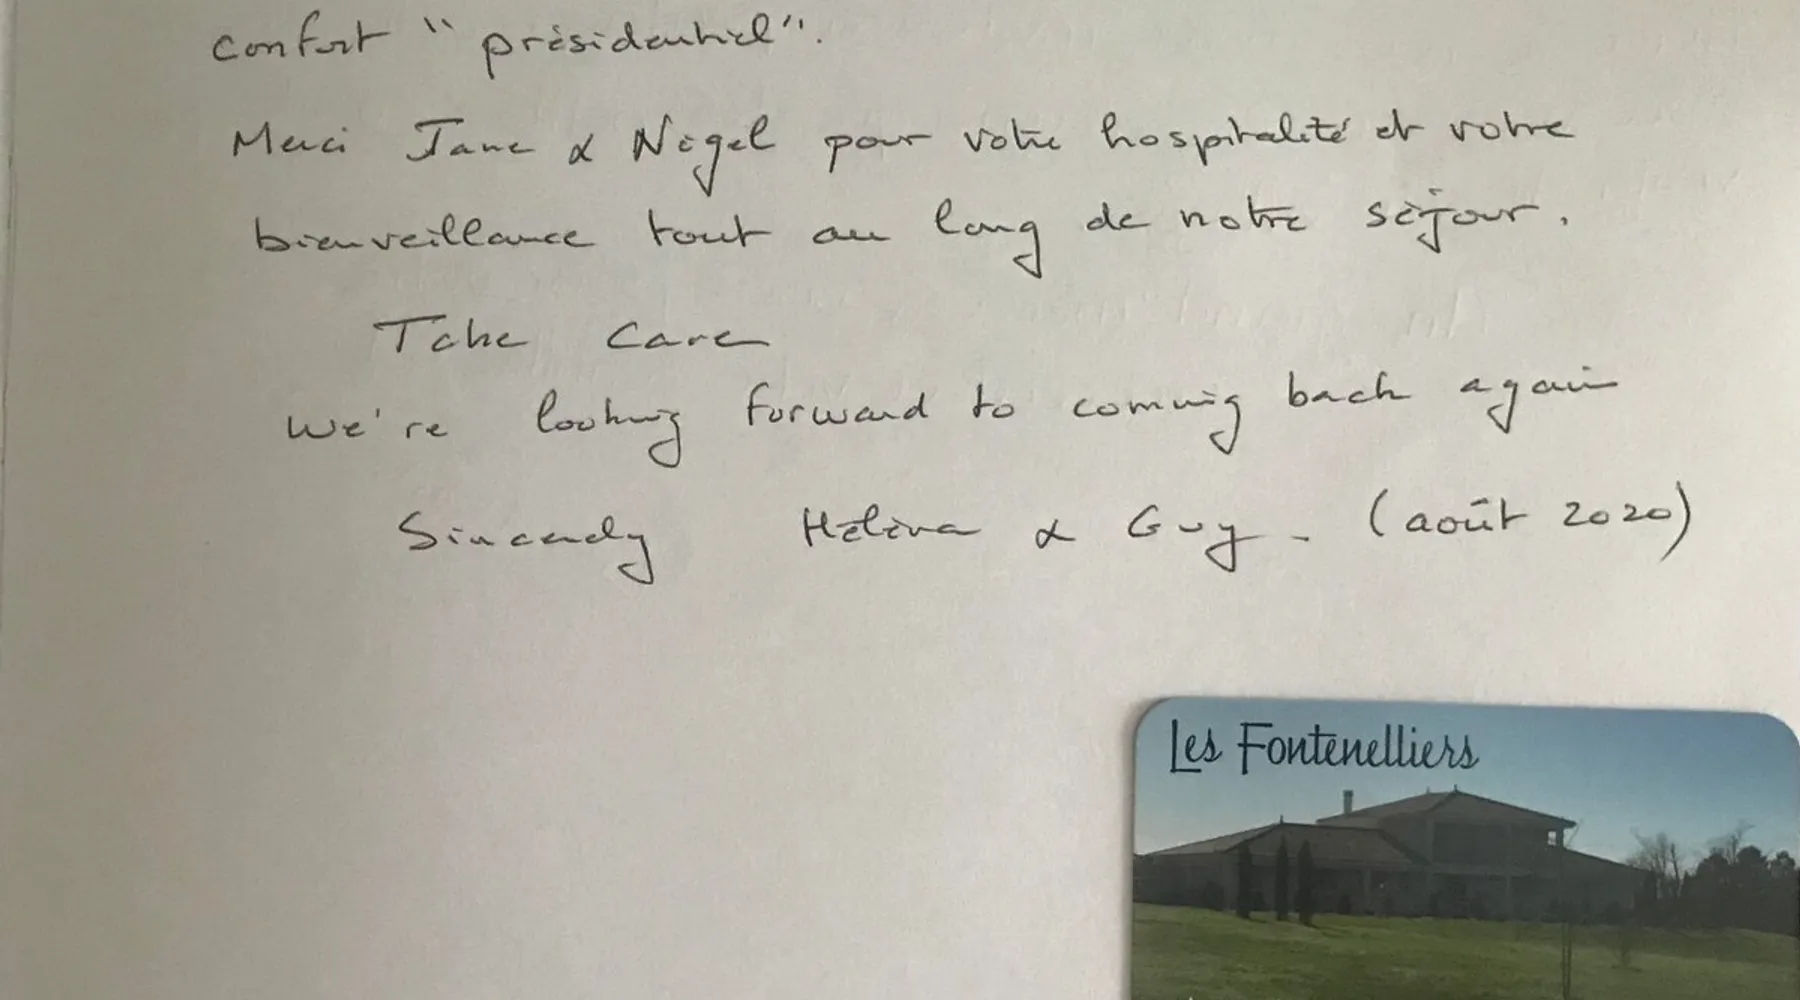 confort "présidentiel".
Merci Jane & Nigel pour votre hospitalité et votre
bienveillance tout au long de notre séjour.
Take care
We're looking forward to coming back again
Sincerely Hélène & Guy. (août 2020)
Les Fontenelliers